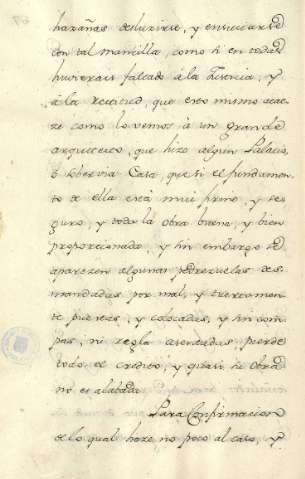 hazañas desluzirse, y ensuciarse
con tal mancilla, como si en todas
huvierais faltado à la Justicia, y
à la rectitud, que esto mismo acae-
ze como lo vemos à un grande
arquitecto, que hizo algun Palacio,
ò sobervia Casa, que si el fundamen-
to de ella està mui firme, y se-
guro, y toda la obra buena, y bien
proporcionada, y sin embargo se
aparezen algunas pedrezuelas des-
mandadas por mal, y
te puestas, y colocadas, y sin com-
pas, ni regla asentadas, pierde
todo el credito, y quasi su obra
no es alabada.
Para Confirmacion
de lo qual haze no poco al caso, y